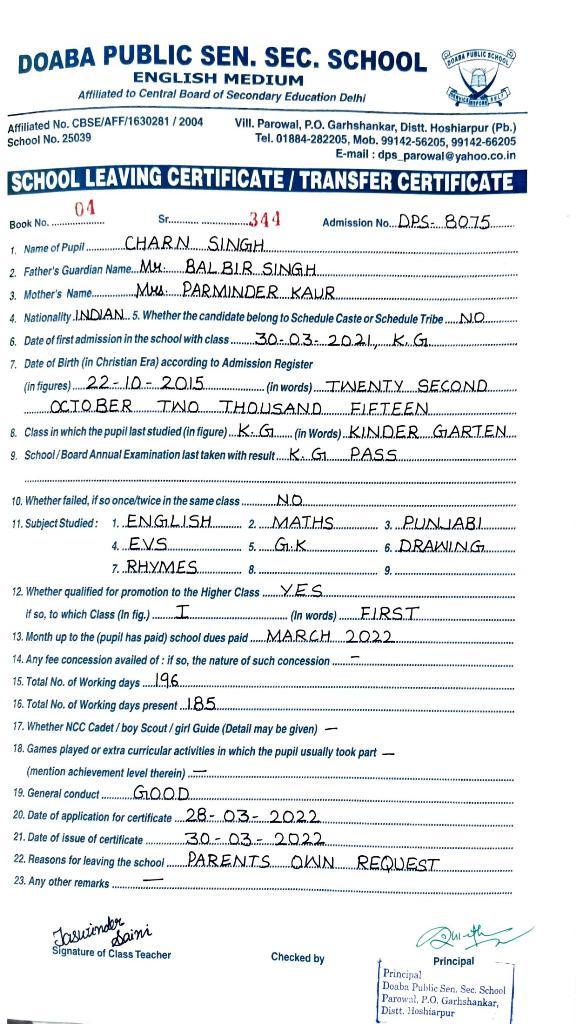 DOABA PUBLIC SEN. SEC. SCHOOL
DOABA PUBLIC SCHOOL
ENGLISH MEDIUM
Affiliated to Central Board of Secondary Education Delhi
Affiliated No. CBSE/AFF/1630281 / 2004
School No. 25039
Vill. Parowal, P.O. Garhshankar, Distt. Hoshiarpur (Pb.)
Tel. 01884-282205, Mob. 99142-56205, 99142-66205
E-mail : dps_parowal@yahoo.co.in
SCHOOL LEAVING CERTIFICATE / TRANSFER CERTIFICATE
Book No. 04 Sr. 344 Admission No. DPS- 8075
1. Name of Pupil CHARN SINGH
2. Father's Guardian Name Mr. BALBIR SINGH
3. Mother's Name Mrs. PARMINDER KAUR
4. Nationality INDIAN 5. Whether the candidate belong to Schedule Caste or Schedule Tribe NO
6. Date of first admission in the school with class 30-03-2021, K.G
7. Date of Birth (in Christian Era) according to Admission Register
(in figures) 22-10-2015 (in words) TWENTY SECOND
OCTOBER TWO THOUSAND FIFTEEN
8. Class in which the pupil last studied (in figure) K.G (in Words) KINDER GARTEN
9. School / Board Annual Examination last taken with result K.G PASS
10. Whether failed, if so once/twice in the same class NO
11. Subject Studied : 1. ENGLISH 2. MATHS 3. PUNJABI
4. EVS 5. G.K 6. DRAWING
7. RHYMES 8. 9.
12. Whether qualified for promotion to the Higher Class YES
if so, to which Class (In fig.) I (In words) FIRST
13. Month up to the (pupil has paid) school dues paid MARCH 2022
14. Any fee concession availed of : if so, the nature of such concession –
15. Total No. of Working days 196
16. Total No. of Working days present 185
17. Whether NCC Cadet / boy Scout / girl Guide (Detail may be given) –
18. Games played or extra curricular activities in which the pupil usually took part –
(mention achievement level therein) –
19. General conduct GOOD
20. Date of application for certificate 28-03-2022
21. Date of issue of certificate 30-03-2022
22. Reasons for leaving the school PARENTS OWN REQUEST
23. Any other remarks –
Jaswinder
Saini
Signature of Class Teacher
Checked by
Principal
Principal
Doaba Public Sen. Sec. School
Parowal, P.O. Garhshankar,
Distt. Hoshiarpur